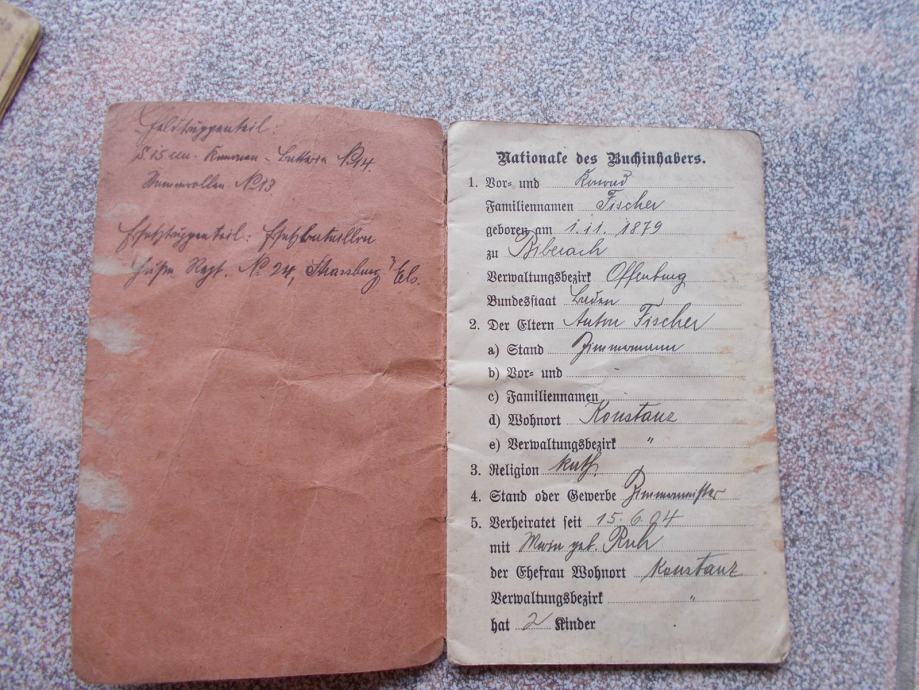 Feldtruppenteil:
8.15 cm. Kanonen-Batterie No 14.
Stammrollen No 13
Ersatztruppenteil: Ersatzbataillon
Fußa. Regt. No 24, Strassburg i/Els.
Nationale des Buchinhabers.
1. Vor- und Konrad
Familiennamen Fischer
geboren am 1.11.1879
zu Biberach
Verwaltungsbezirk Offenburg
Bundesstaat Baden
2. Der Eltern Anton Fischer
a) Stand Zimmermann
b) Vor- und -
c) Familiennamen
d) Wohnort Konstanz
e) Verwaltungsbezirk "
3. Religion kath.
4. Stand oder Gewerbe Zimmermeister
5. Verheiratet seit 15.6.04
mit Maria geb. Ruh
der Ehefrau Wohnort Konstanz
Verwaltungsbezirk "
hat 2 Kinder